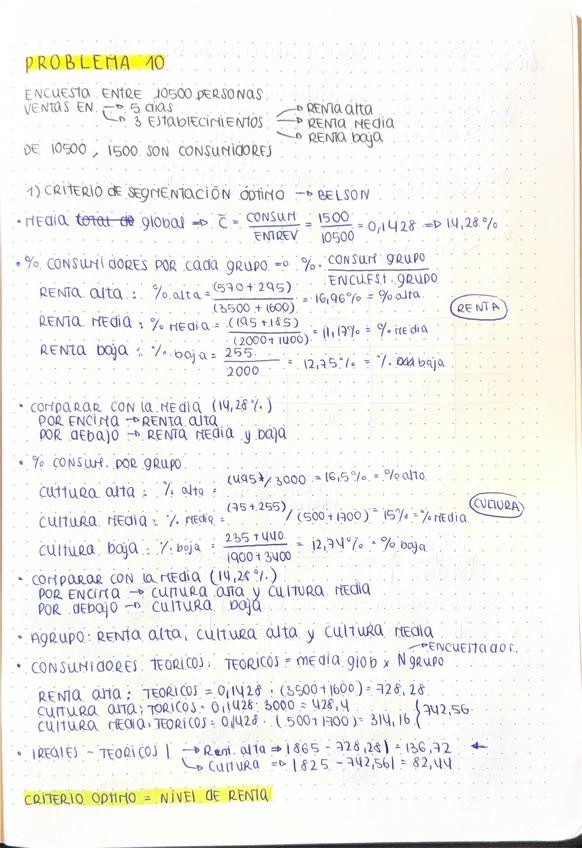 PROBLEMA 10
ENCUESTA ENTRE 10500 PERSONAS
VENTAS EN → 5 días
→ 3 ESTABLECIMIENTOS → RENTA alta
→ RENTA MEDIA
→ RENTA baja
DE 10500, 1500 SON CONSUMIDORES
1) CRITERIO DE SEGMENTACIÓN ÓPTIMO → BELSON
• MEDIA total de global ⇒ C̄ = CONSUM/ENTREV = 1500/10500 = 0,1428 ⇒ 14,28%
• % CONSUMIDORES POR CADA GRUPO ⇒ %. CONSUM GRUPO/ENCUEST. GRUPO
RENTA alta: % alta = (570 + 295)/(3500 + 1600) = 16,96% = % alta
RENTA
RENTA MEDIA: % MEDIA = (195 + 185)/(2000 + 1400) = 11,17% = % MEDIA
RENTA baja: % baja = 255/2000 = 12,75% = % baja
• COMPARAR CON LA MEDIA (14,28%)
POR ENCIMA → RENTA alta
POR DEBAJO → RENTA MEDIA y baja
• % CONSUM. POR GRUPO
CULTURA alta: % alta = (495)/3000 = 16,5% = % alta
CULTURA MEDIA: % MEDIA = (75 + 255)/(500 + 1700) = 15% = % MEDIA
CULTURA
CULTURA baja: % baja = 235 + 440/1900 + 3400 = 12,74% = % baja
• COMPARAR CON LA MEDIA (14,28%)
POR ENCIMA → CULTURA alta Y CULTURA MEDIA
POR DEBAJO → CULTURA baja
• AGRUPO: RENTA alta, CULTURA alta y CULTURA MEDIA
• CONSUMIDORES TEORICOS: TEORICOS = MEDIA glob x N grupo → ENCUESTADOR.
RENTA alta: TEORICOS = 0,1428 · (3500 + 1600) = 728,28
CULTURA alta: TORICOS = 0,1428 · 3000 = 428,4
CULTURA MEDIA: TEORICOS = 0,1428 · (500 + 1700) = 314,16 } 742,56
• |REALES - TEORICOS| → Rent. alta ⇒ |865 - 728,28| = 136,72 ←
→ CULTURA ⇒ |825 - 742,56| = 82,44
CRITERIO OPTIMO = NIVEL DE RENTA